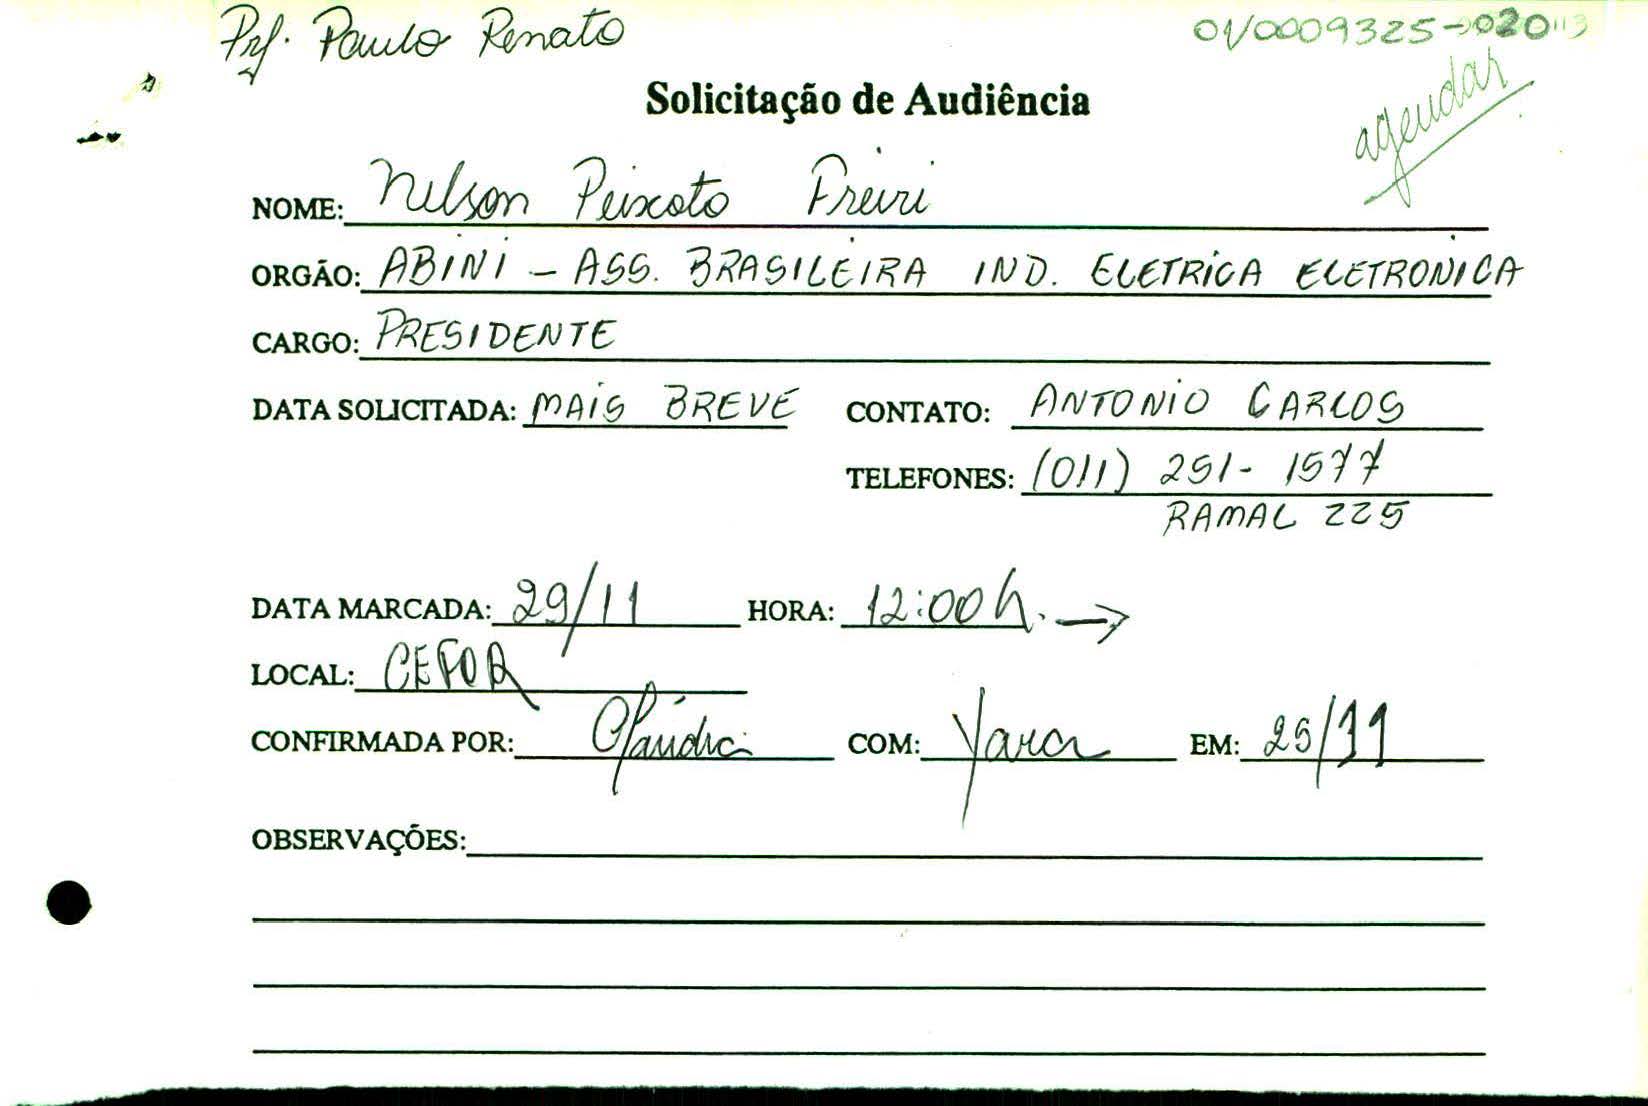 Prf. Paulo Renato
01/0009325-020113
agendar
Solicitação de Audiência
NOME: Nelson Peixoto Freiri
ORGÃO: ABINI - ASS. BRASILEIRA IND. ELETRICA ELETRONICA
CARGO: PRESIDENTE
DATA SOLICITADA: MAIS BREVE CONTATO: ANTONIO CARLOS
TELEFONES: (011) 251-1577
RAMAL 225
DATA MARCADA: 29/11 HORA: 12:00h. →
LOCAL: CEFOR
CONFIRMADA POR: Cláudia COM: Yara EM: 25/11
OBSERVAÇÕES: